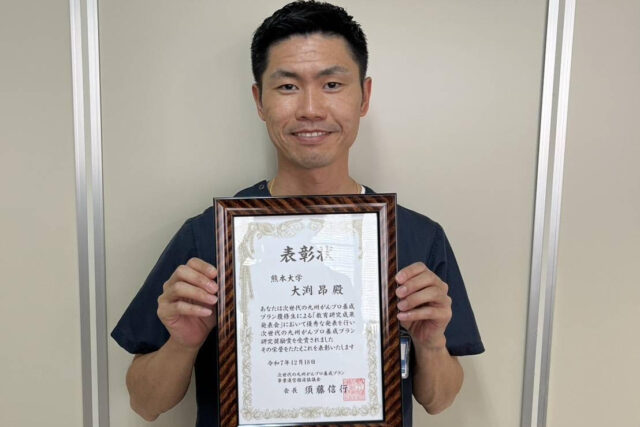 表彰状
熊本大学
大渕 昂 殿
あなたは次世代の九州がんプロ養成
プラン履修生による「教育研究成果
発表会」において優秀な発表を行い
次世代の九州がんプロ養成プラン
研究奨励賞を受賞されました
その栄誉をたたえこれを表彰いたします
令和7年12月18日
次世代の九州がんプロ養成プラン
事業運営推進協議会
会長 須藤信行